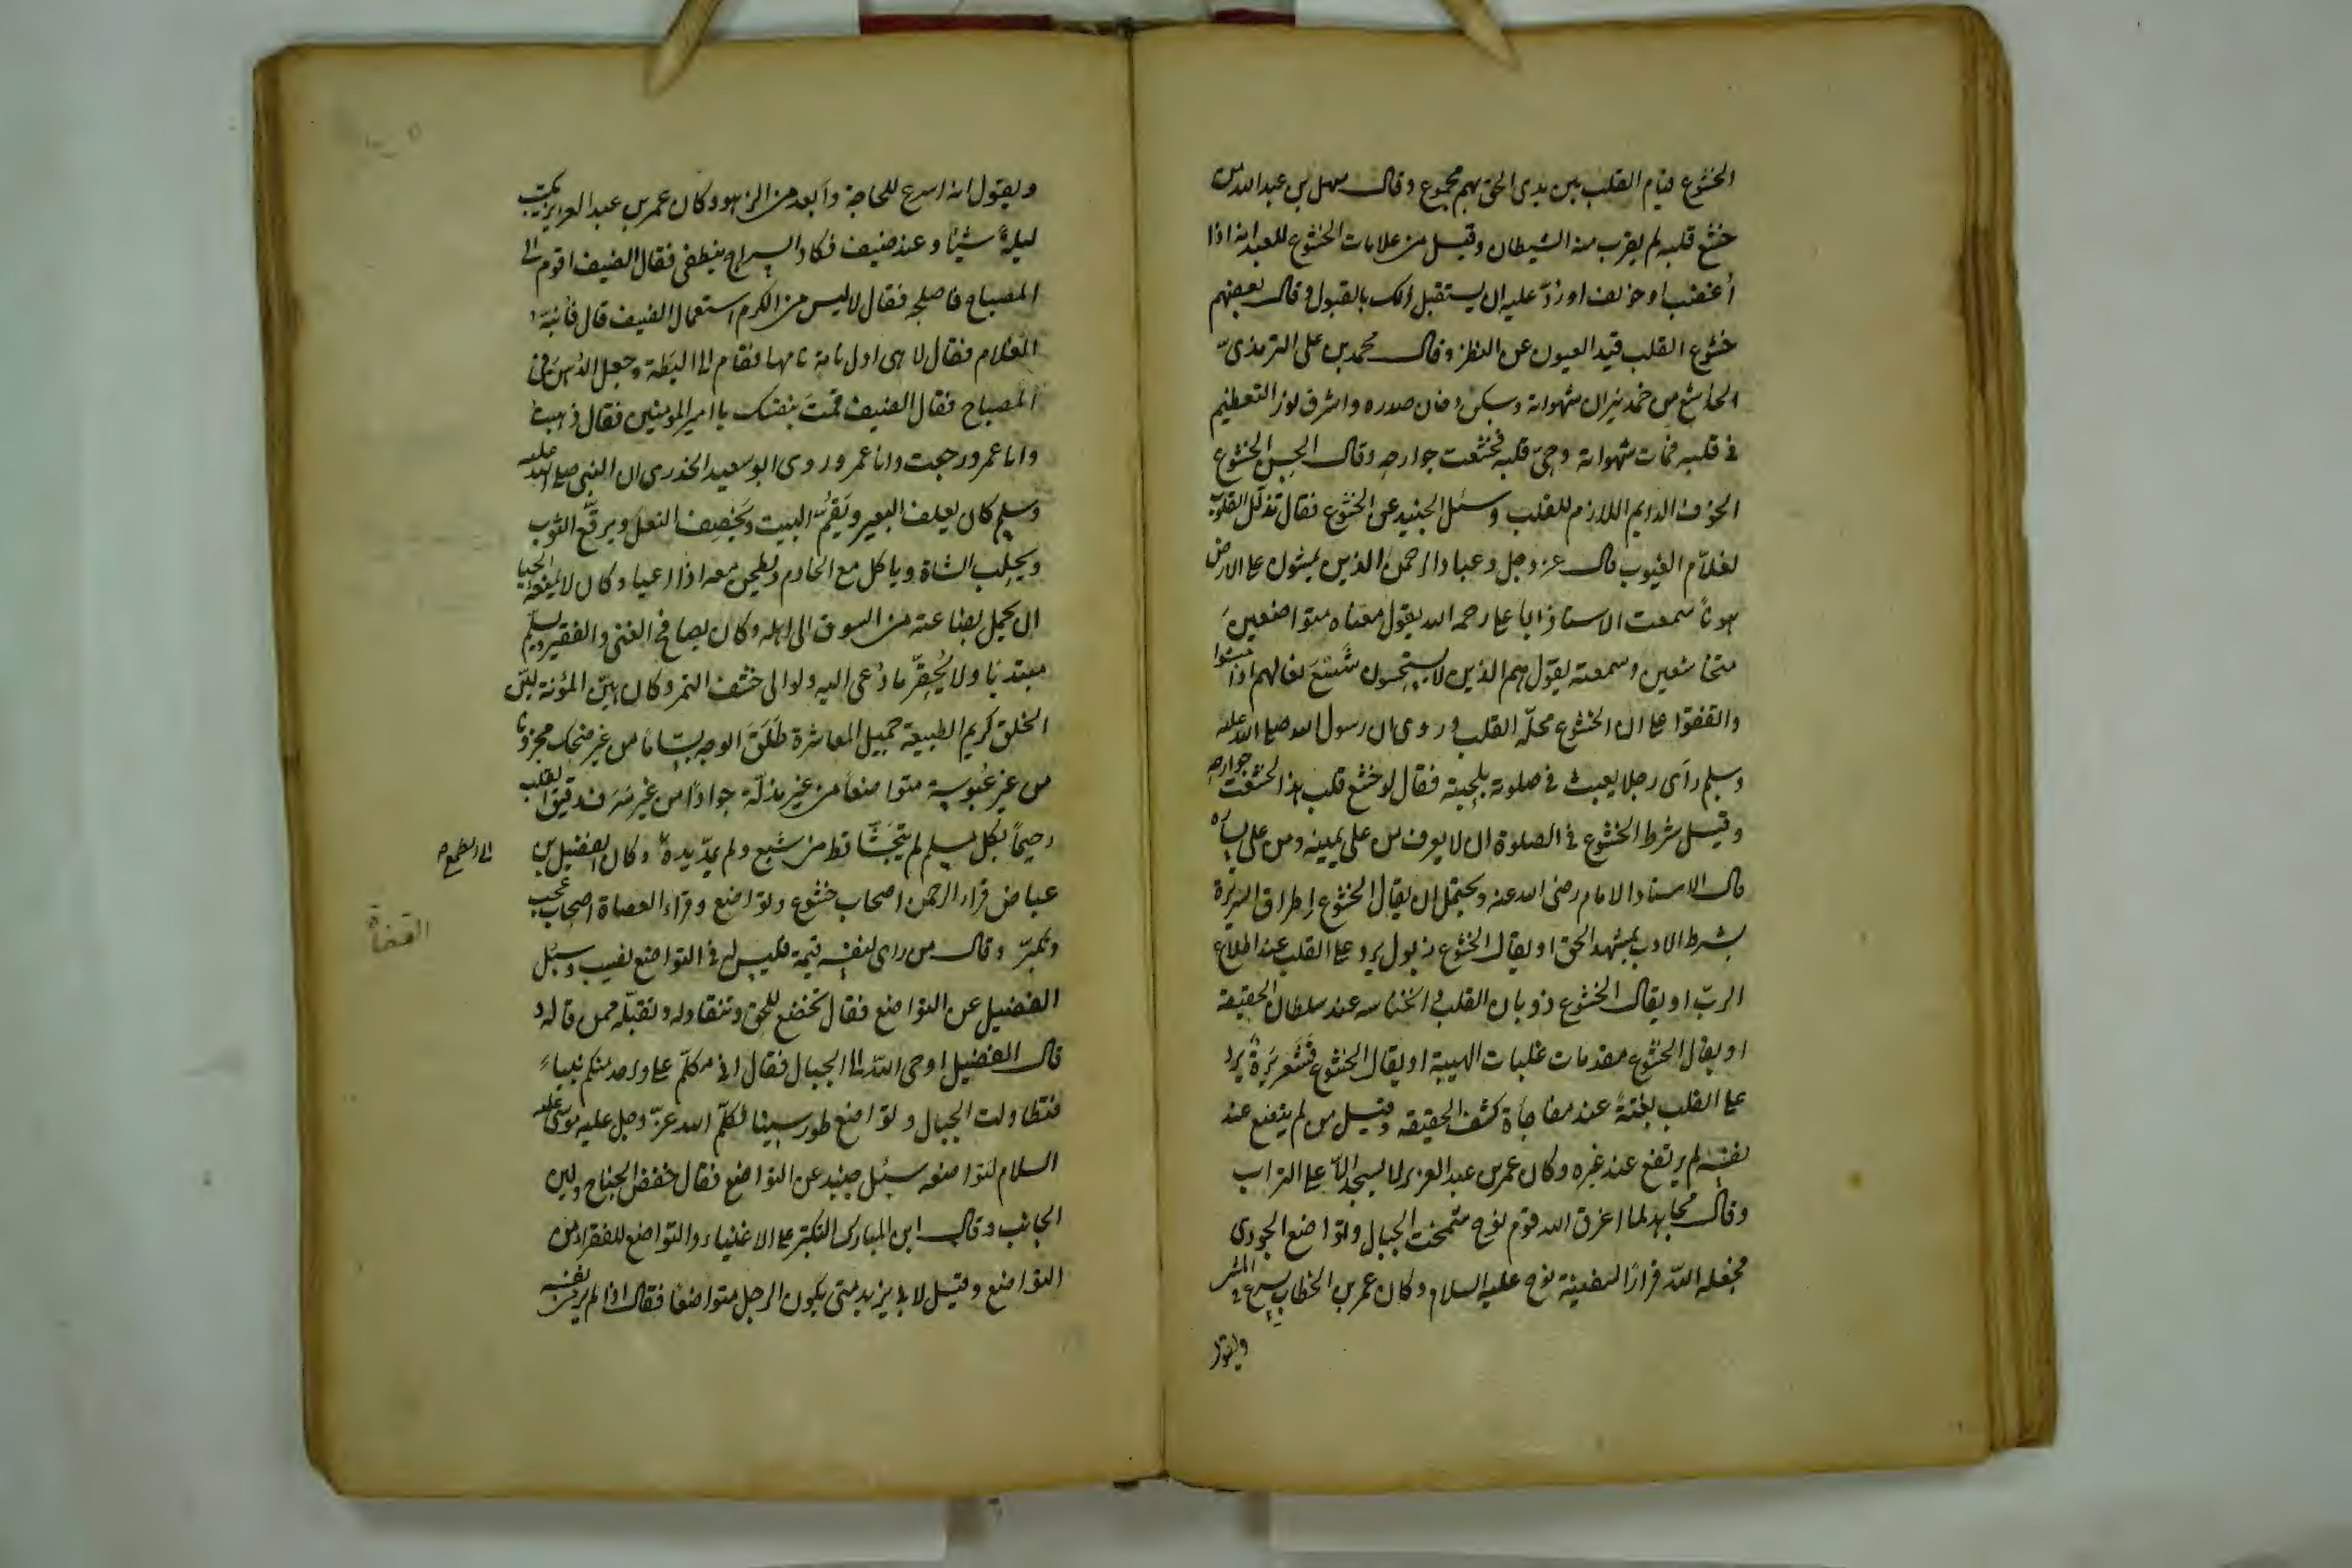 الخشوع قيام القلب بين يدى الحق بهم مجموع وقال سهل بن عبد الله من
خشع قلبه لم يقرب منه الشيطان وقيل من علامات الخشوع للعبد انه اذا
أُغضب او خولف او رُدّ عليه ان يستقبل ذلك بالقبول وقال بعضهم
خشوع القلب قيد العيون عن النظر وقال محمد بن على الترمذى
الخاشع من خمد نيران شهواته وسكن دخان صدره واشرق نور التعظيم
فى قلبه فمات شهواته وحىّ قلبه فخشعت جوارحه وقال الحسن الخشوع
الخوف الدايم اللازم للقلب وسئل الجنيد عن الخشوع فقال تذلّل القلوب
لعلّام الغيوب قال عز وجل وعباد الرحمن الذين يمشون على الارض
هونًا سمعت الاستاذ ابا على رحمه الله يقول معناه متواضعين
متخاشعين وسمعته يقول هم الذين لا يستحسنون شسع نعالهم اذا مشوا
واتفقوا على ان الخشوع محلّه القلب وروى ان رسول الله صلى الله عليه
وسلم رأى رجلا يعبث فى صلوته بلحيته فقال لو خشع قلب هذا لخشعت جوارحه
وقيل شرط الخشوع فى الصلوة ان لا يعرف من على يمينه ومن على يساره
قال الاستاد الامام رضى الله عنه ويحتمل ان يقال الخشوع إطراق السريرة
بشرط الادب بمشهد الحق او يقال الخشوع ذبول يرد على القلب عند اطلاع
الربّ او يقال الخشوع ذوبان القلب وانخناسه عند سلطان الحقيقة
او يقال الخشوع مقدمات غلبات الهيبة او يقال الخشوع قشعريرة يرد
على القلب بغتةً عند مفاجأة كشف الحقيقة وقيل من لم يتضع عند
نفسه لم يرتفع عند غيره وكان عمر بن عبد العزيز لا يسجد الّا على التراب
وقال مجاهد لما اغرق الله قوم نوح شمخت الجبال وتواضع الجودى
فجعله الله قرارًا لسفينة نوح عليه السلام وكان عمر بن الخطاب يسرع فى المشى
ويقول
ويقول انه اسرع للحاجة وأبعد من الزهو وكان عمر بن عبد العزيز يكتب
ليلةً شيئا وعنده ضيف فكاد السراج ينطفى فقال الضيف اقوم الى
المصباح فاصلحه فقال لا ليس من الكرم استعمال الضيف قال فأنبّه
الغلام فقال لا هى اول نومة نامها فقام الى البطة وجعل الدهن فى
المصباح فقال الضيف قمتَ بنفسك يا امير المومنين فقال ذهبت
وانا عمر ورجعت وانا عمر وروى ابو سعيد الخدرى ان النبى صلى الله عليه
وسلم كان يعلف البعير ويَقُمّ البيت ويَخصِف النعل ويرقّع الثوب
ويحلِب الشاة وياكل مع الخادم ويطحن معه اذا اعيا وكان لا يمنعه الحيا
ان يحمل بضاعته من السوق الى اهله وكان يصافح الغنى والفقير ويسلّم
مبتديًا ولا يُحقّر ما دُعى اليه ولو الى خشف التمر وكان هيّن المؤنة ليّن
الخلق كريم الطبيعة جميل المعاشرة طَلَقَ الوجه بسّامًا من غير ضحك محزونًا
من غير عُبوسة متواضعاً من غير مذلّة جوادًا من غير سَرَف رقيق القلب
رحيمًا بكل مسلم لم يَتَجَشّأ قط من شبع ولم يمدّ يده وكان الفضيل بن
الى طمع
عياض قراء الرحمن اصحاب خشوع وتواضع وقراء العصاة اصحاب عجب
القضاة
وتكبّر وقال من راى لنفسه قيمة فليس له فى التواضع نصيب وسئل
الفضيل عن التواضع فقال تخضع للحق وتنقاد له وتقبّله ممن قاله و
قال الفضيل اوحى الله الى الجبال فقال انى مكلّم على واحد منكم نبياً
فتطاولت الجبال وتواضع طور سينا فكلّم الله عزّ وجل عليه موسى عليه
السلام لتواضعه سئل جنيد عن التواضع فقال خفض الجناح ولين
الجانب وقال ابن المبارك التكبّر على الاغنياء والتواضع للفقراء من
التواضع وقيل لابى يزيد متى يكون الرجل متواضعًا فقال اذا لم ير لنفسه